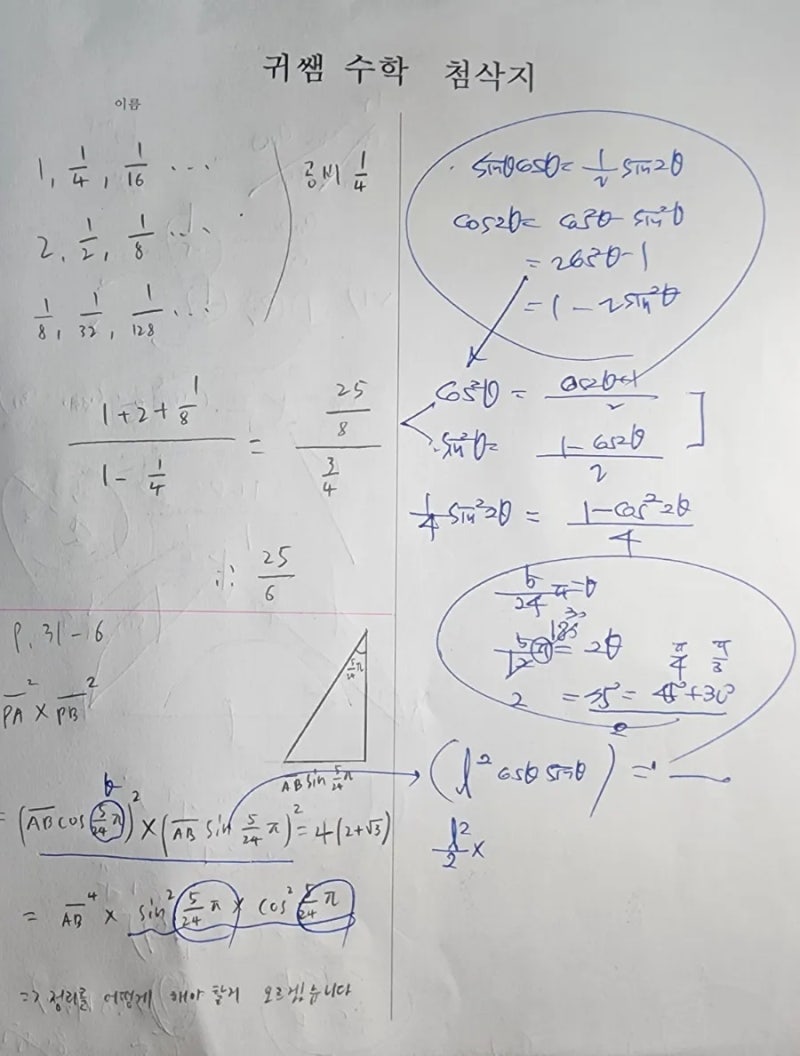 귀쌤 수학 첨삭지
이름
1, 1/4, 1/16 ...
공비 1/4
2, 1/2, 1/8 ...
1/8, 1/32, 1/128 ...
(1+2+1/8)/(1-1/4) = (25/8)/(3/4)
∴ 25/6
P. 31-16
PA² × PB²
5/24 π
AB sin 5/24 π
θ
= (AB cos 5/24 π)² × (AB sin 5/24 π)² = 4(2+√3)
= AB⁴ × sin² 5/24 π × cos² 5/24 π
=> 정리를 어떻게 해야 할지 모르겠습니다
sinθcosθ = 1/2 sin2θ
cos2θ = cos²θ - sin²θ
= 2cos²θ - 1
= 1 - 2sin²θ
cos²θ = (cos2θ+1)/2
sin²θ = (1-cos2θ)/2
1/4 sin²2θ = (1-cos²2θ)/4
5/24 π = θ
5/12 π = 2θ
π/4 π/3
= 75° = 45°+30°
2
(l² cosθ sinθ) =
l²/2 ×